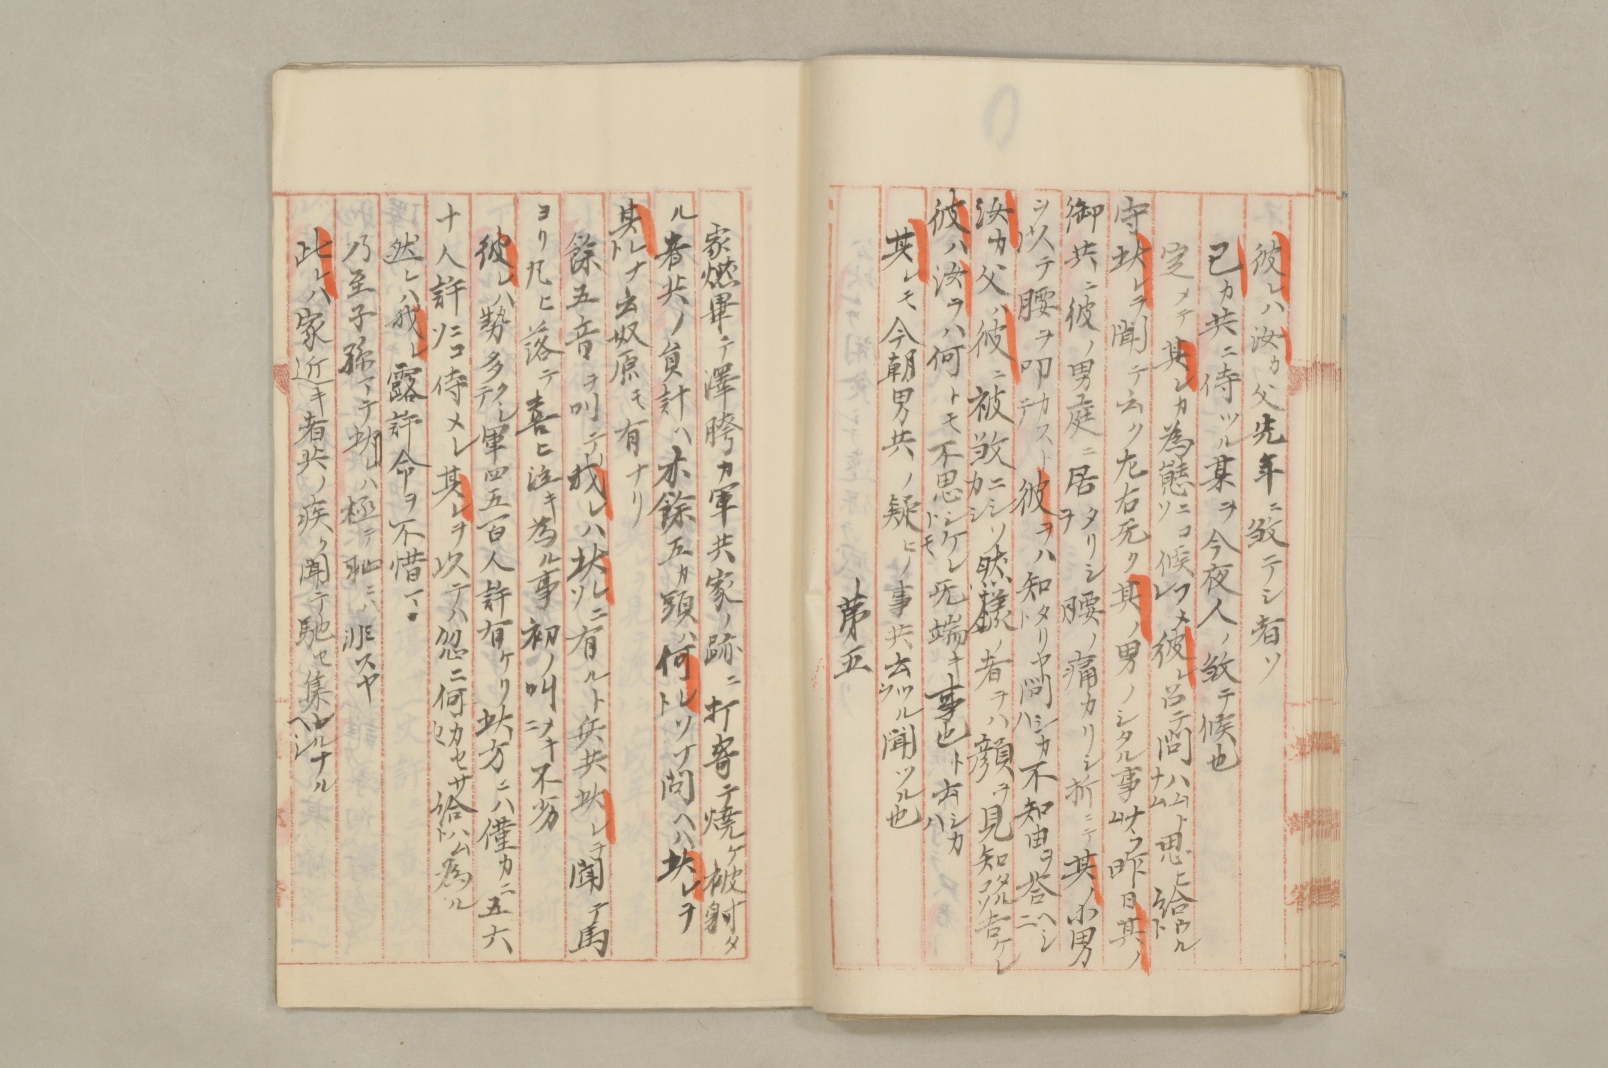 彼レハ汝カ父先年ニ敓テシ者ソ
己カ共ニ侍ツル某ヲ今夜人ノ敓テ候也
定メテ其レカ為態ニコソ候フメレ彼レ召テ問ハムトナム思ヒ給ウルト
守此レヲ聞テ云ク左右无ク其ノ男ノシタル事ナラム昨日其ノ
御共ニ彼ノ男庭ニ居タリシヲ腰ノ痛カリシ折ニテ其ノ小男
シ以テ腰ヲ叩カストテ彼ヲハ知タリヤト問ハシカハ不知由ヲ答ヘシニ
汝カ父ハ彼ニ被敓ニシソカシ然様ノ者ヲハ顔ヲ見知タルコソ吉ケレ
彼ハ汝ヲハ何トモ不思シケレトモ无端キ事也ト云シカハ
其レモ今朝男共ノ疑ヒノ事共云ツルシヲ聞ツル也
第五
家燃畢テ澤胯カ軍共家ノ跡ニ打寄テ焼ケ被射タ
ル者共ノ員計ヘ亦餘五カ頭ハ何レソナト問ヘハ此レヲ
其レナト云奴原モ有ナリ
餘五音ヲ叫テ我レハ此ニソ有ルト兵共此レヲ聞テ馬
ヨリ凡ヒ落テ喜ヒ泣キ為ル事初ノ叫ヲメキニ不劣
彼レハ勢多クシテ軍四五百人許有ケリ此方ニハ僅カニ五六
十人許ソニコ侍メレ其レヲ以テハ忽ニ何カセサセ給ハムト為ル
然レハ我レ露許命ヲ不惜
乃至子孫マテ此レハ極テ耻ニハ非スヤ
此レハ家近キ者共ノ疾ク聞テ馳セ集ヘルナルヘシ